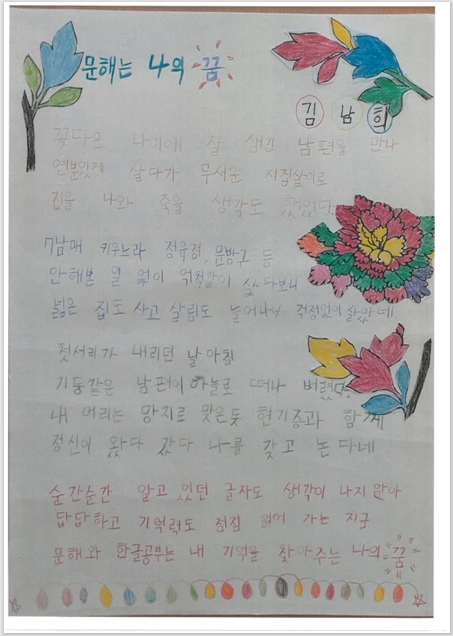 문해는 나의 꿈
김남희
꽃다운 나이에 잘 생긴 남편을 만나
연분있게 살다가 무서운 시집살이로
집을 나와 죽을 생각도 했었다.
7남매 키우느라 정육점, 문방구 등
안해본 일 없이 억척같이 살다보니
넓은 집도 사고 살림도 늘어나서 걱정없이 살았네
첫서리가 내리던 날 아침
기둥같은 남편이 하늘로 떠나 버렸다.
내 머리는 망치로 맞은듯 현기증과 함께
정신이 왔다 갔다 나를 갖고 논다네
순간순간 알고 있던 글자도 생각이 나지 않아
답답하고 기억력도 점점 잃어 가는 지금
문해와 한글공부는 내 기억을 찾아주는 나의 꿈